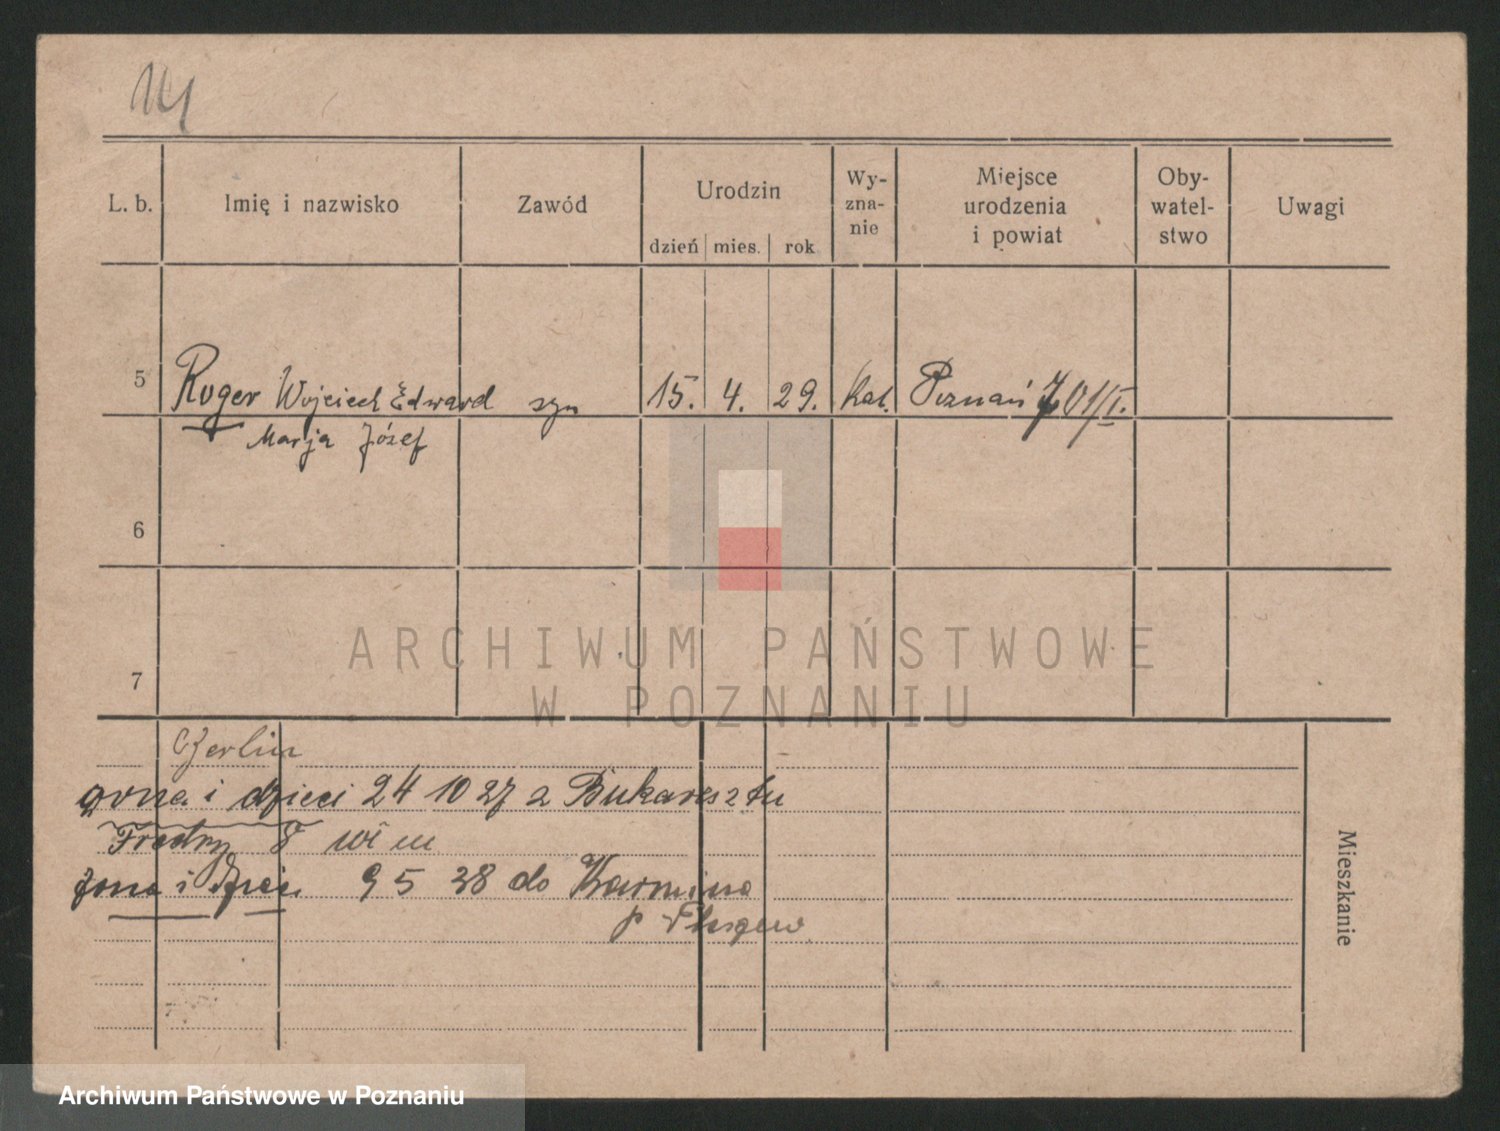 14
L. b. Imię i nazwisko Zawód Urodzin Wy-zna-nie Miejsce urodzenia i powiat Oby-watel-stwo Uwagi
dzień mies. rok
5 Roger Wojciech Edward syn 15. 4. 29. kat. Poznań
Marja Józef
6
7
ARCHIWUM PAŃSTWOWE
W POZNANIU
żona i dzieci 24 10 27 z Bukaresztu
Fredry 8
żona i dzieci 9 5 38 do Karmina
p
Mieszkanie
Archiwum Państwowe w Poznaniu